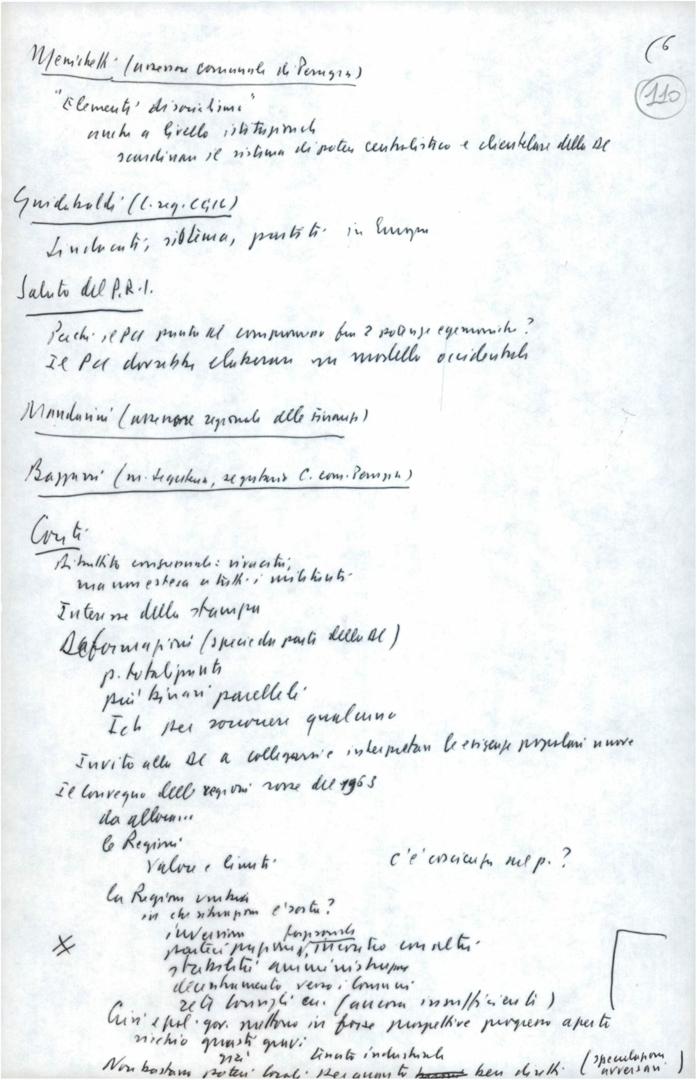 (6
110
Menichetti (assessore comunale di Perugia)
"Elementi di socialismo"
anche a livello istituzionale
scardinare il sistema di potere centralistico e clientelare della DC
Guidobaldi (C. reg. CGIL)
Sindacati, sistema, partiti in Europa
Saluto del P.R.I.
Perché il PCI punta al compromesso fra 2 potenze egemoniche?
Il PCI dovrebbe elaborare un modello occidentale
Mandarini (assessore regionale delle finanze)
(m. segreteria, segretario C. com. Perugia)
Conti
Dibattito congressuale: vivacità,
ma non estesa a tutti i militanti
Interesse della stampa
Deformazioni (specie da parte della DC)
p. totalizzante
più binari paralleli
per soccorrere qualcuno
Invito alla DC a collegarsi e interpretare le esigenze popolari nuove
Il convegno delle regioni rosse del 1963
da allora...
le Regioni
valore e limiti c'è coscienza nel p.?
La Regione umbra
in che situazione è sorta?
inversione
partecipazione, incontro con altri
stabilità amministrazione
decentramento verso i Comuni
(ancora insufficienti)
Crisi e pol. gov. mettono in forse prospettive progresso aperte
rischio guasti gravi
tenuta industriale
Non bastano poteri locali per quanto ben diretti (speculazioni avversari)